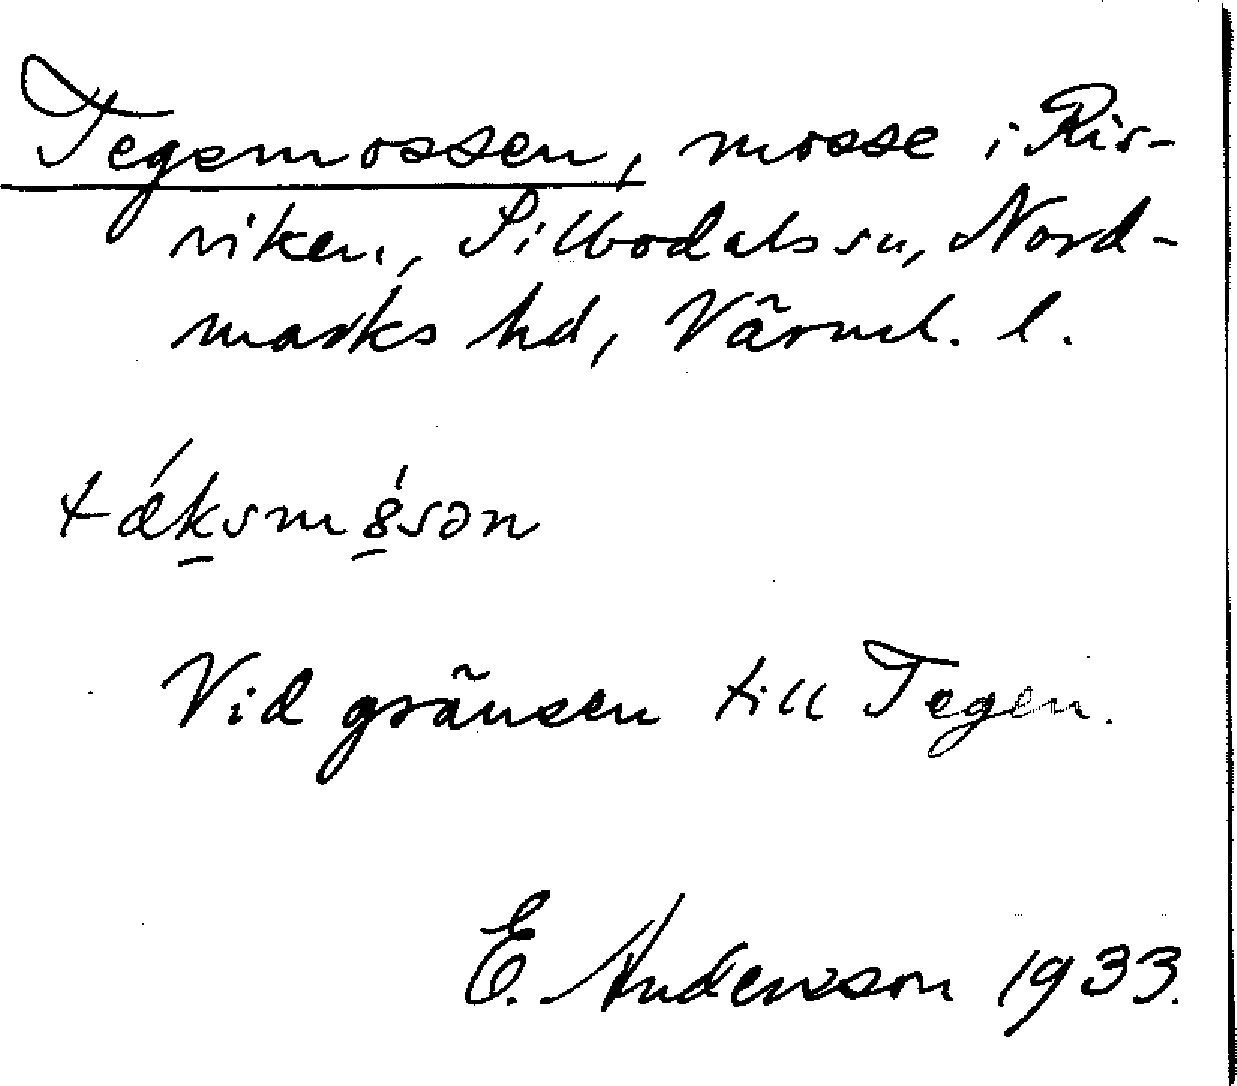 Tegsmossen, mosse i Ris-
viken, Silbodals sn, Nord-
marks hd, Värml. l.
tǽksmósən
Vid gränsen till Tegen.
E. Andersson 1933.